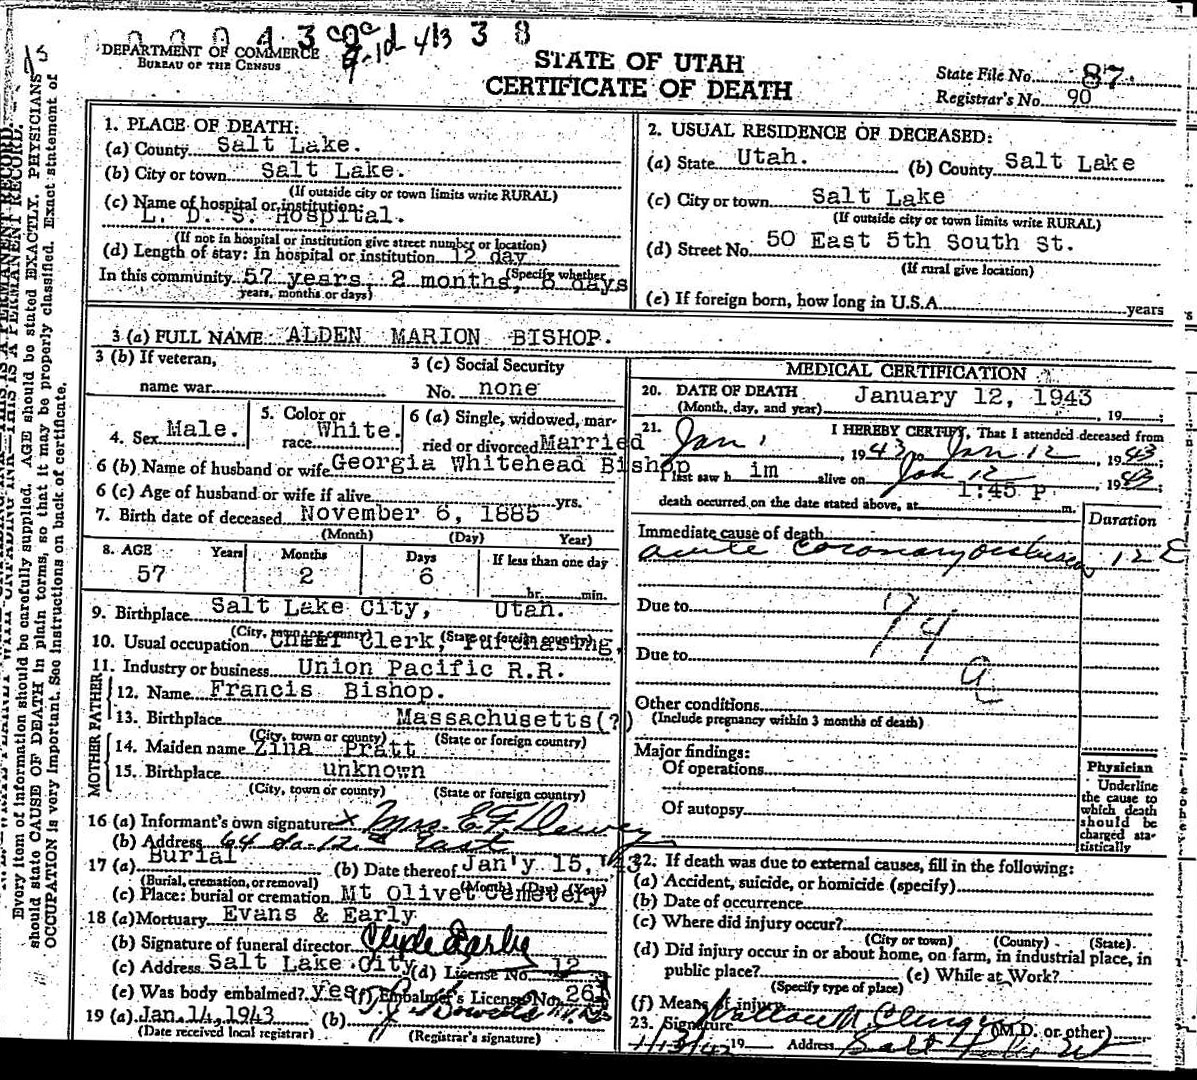 43 38
DEPARTMENT OF COMMERCE
BUREAU OF THE CENSUS
STATE OF UTAH
CERTIFICATE OF DEATH
State File No. 87
Registrar's No. 90
Every item of information should be carefully supplied. AGE should be stated EXACTLY. PHYSICIANS
should state CAUSE OF DEATH in plain terms, so that it may be properly classified. Exact statement of
OCCUPATION is very important. See instructions on back of certificate.
1. PLACE OF DEATH:
(a) County Salt Lake.
(b) City or town Salt Lake.
(If outside city or town limits write RURAL)
(c) Name of hospital or institution:
L. D. S. Hospital.
(If not in hospital or institution give street number or location)
(d) Length of stay: In hospital or institution 12 day
(Specify whether
In this community 57 years, 2 months, 6 days
years, months or days)
2. USUAL RESIDENCE OF DECEASED:
(a) State Utah. (b) County Salt Lake
(c) City or town Salt Lake
(If outside city or town limits write RURAL)
(d) Street No. 50 East 5th South St.
(If rural give location)
(e) If foreign born, how long in U.S.A. years
3 (a) FULL NAME ALDEN MARION BISHOP.
3 (b) If veteran,
name war
3 (c) Social Security
No. none
4. Sex Male.
5. Color or
race White.
6 (a) Single, widowed, mar-
ried or divorced Married
6 (b) Name of husband or wife Georgia Whitehead Bishop
6 (c) Age of husband or wife if alive yrs.
7. Birth date of deceased November 6, 1885
(Month) (Day) Year)
8. AGE Years Months Days If less than one day
57 2 6 hr. min.
9. Birthplace Salt Lake City, Utah.
(City, town or county) (State or foreign country)
10. Usual occupation Chief Clerk, Purchasing,
11. Industry or business Union Pacific R.R.
FATHER
12. Name Francis Bishop.
13. Birthplace Massachusetts(?)
(City, town or county) (State or foreign country)
MOTHER
14. Maiden name Zina Pratt
15. Birthplace unknown
(City, town or county) (State or foreign country)
16 (a) Informant's own signature x Mrs. E F Dewey
(b) Address 64 So. 12 East
17 (a) Burial (b) Date thereof Jan'y 15, '43
(Burial, cremation, or removal) (Month) (Day) (Year)
(c) Place: burial or cremation Mt Olivet Cemetery
18 (a) Mortuary Evans & Early
(b) Signature of funeral director Clyde Early
(c) Address Salt Lake City (d) License No. 12
(e) Was body embalmed? yes (f) Embalmer's License No. 261
19 (a) Jan. 14, 1943 (b)
(Date received local registrar) (Registrar's signature)
MEDICAL CERTIFICATION
20. DATE OF DEATH January 12, 1943
(Month, day, and year) , 19 ;
21. I HEREBY CERTIFY, That I attended deceased from
Jan 1, 1943 to Jan 12, 1943
I last saw h im alive on Jan 12, 1943;
death occurred on the date stated above, at 1:45 P m.
Duration
Immediate cause of death
acute coronary occlusion 12
Due to
94
Due to
a
Other conditions
(Include pregnancy within 3 months of death)
Major findings:
Of operations
Of autopsy
Physician
Underline
the cause to
which death
should be
charged sta-
tistically
22. If death was due to external causes, fill in the following:
(a) Accident, suicide, or homicide (specify)
(b) Date of occurrence
(c) Where did injury occur?
(City or town) (County) (State)
(d) Did injury occur in or about home, on farm, in industrial place, in
public place? (e) While at Work?
(Specify type of place)
(f) Means of injury
23. Signature (M.D. or other)
19 Address Salt Lake